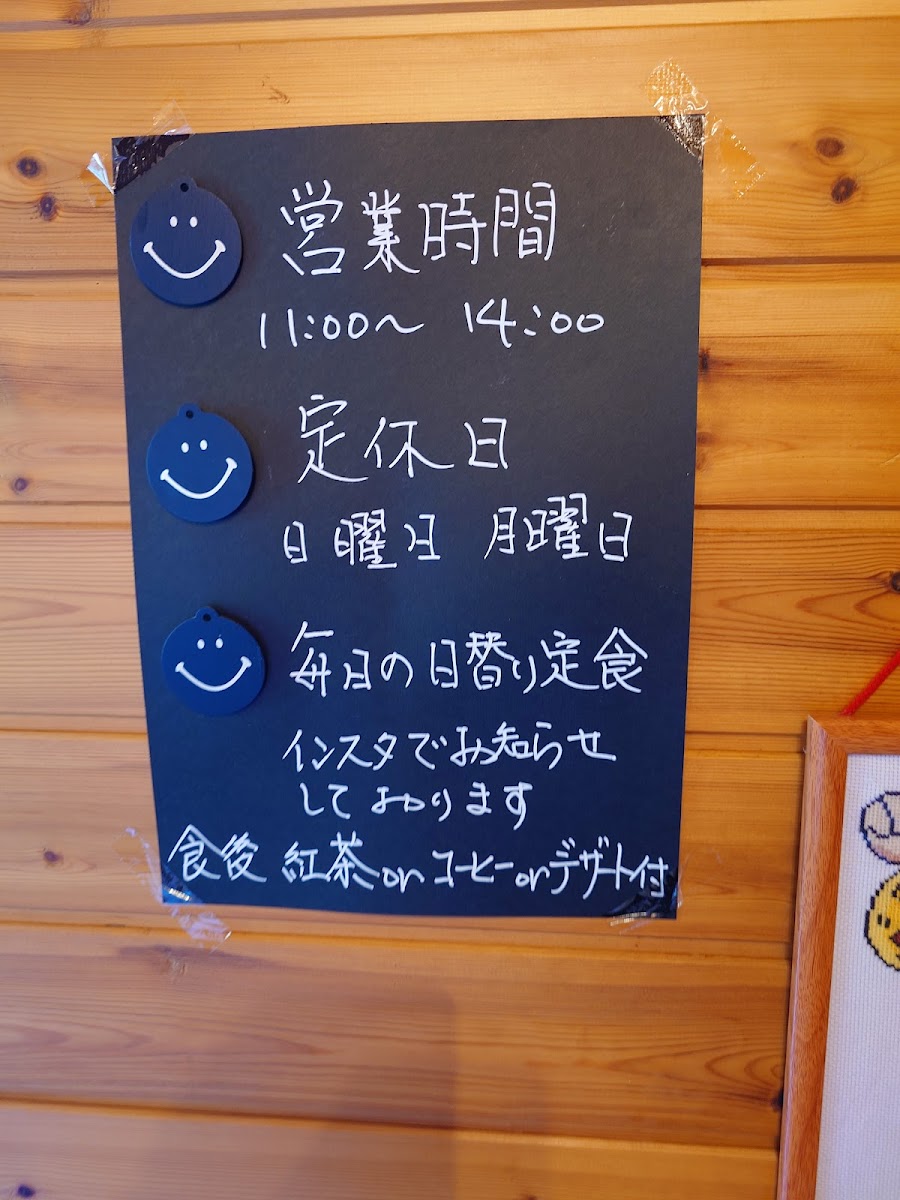 営業時間
11:00〜 14:00
定休日
日曜日 月曜日
毎日の日替り定食
インスタでお知らせ
しております
食後 紅茶orコーヒーorデザート付